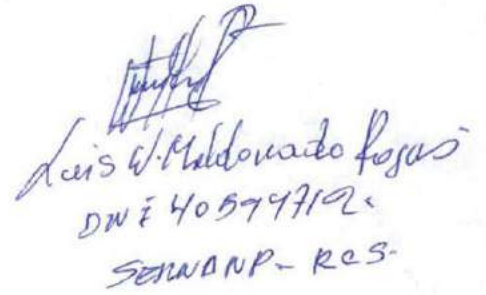 Luis W. Maldonado Rojas
DNI 40599719.
SERNANP - RCS.